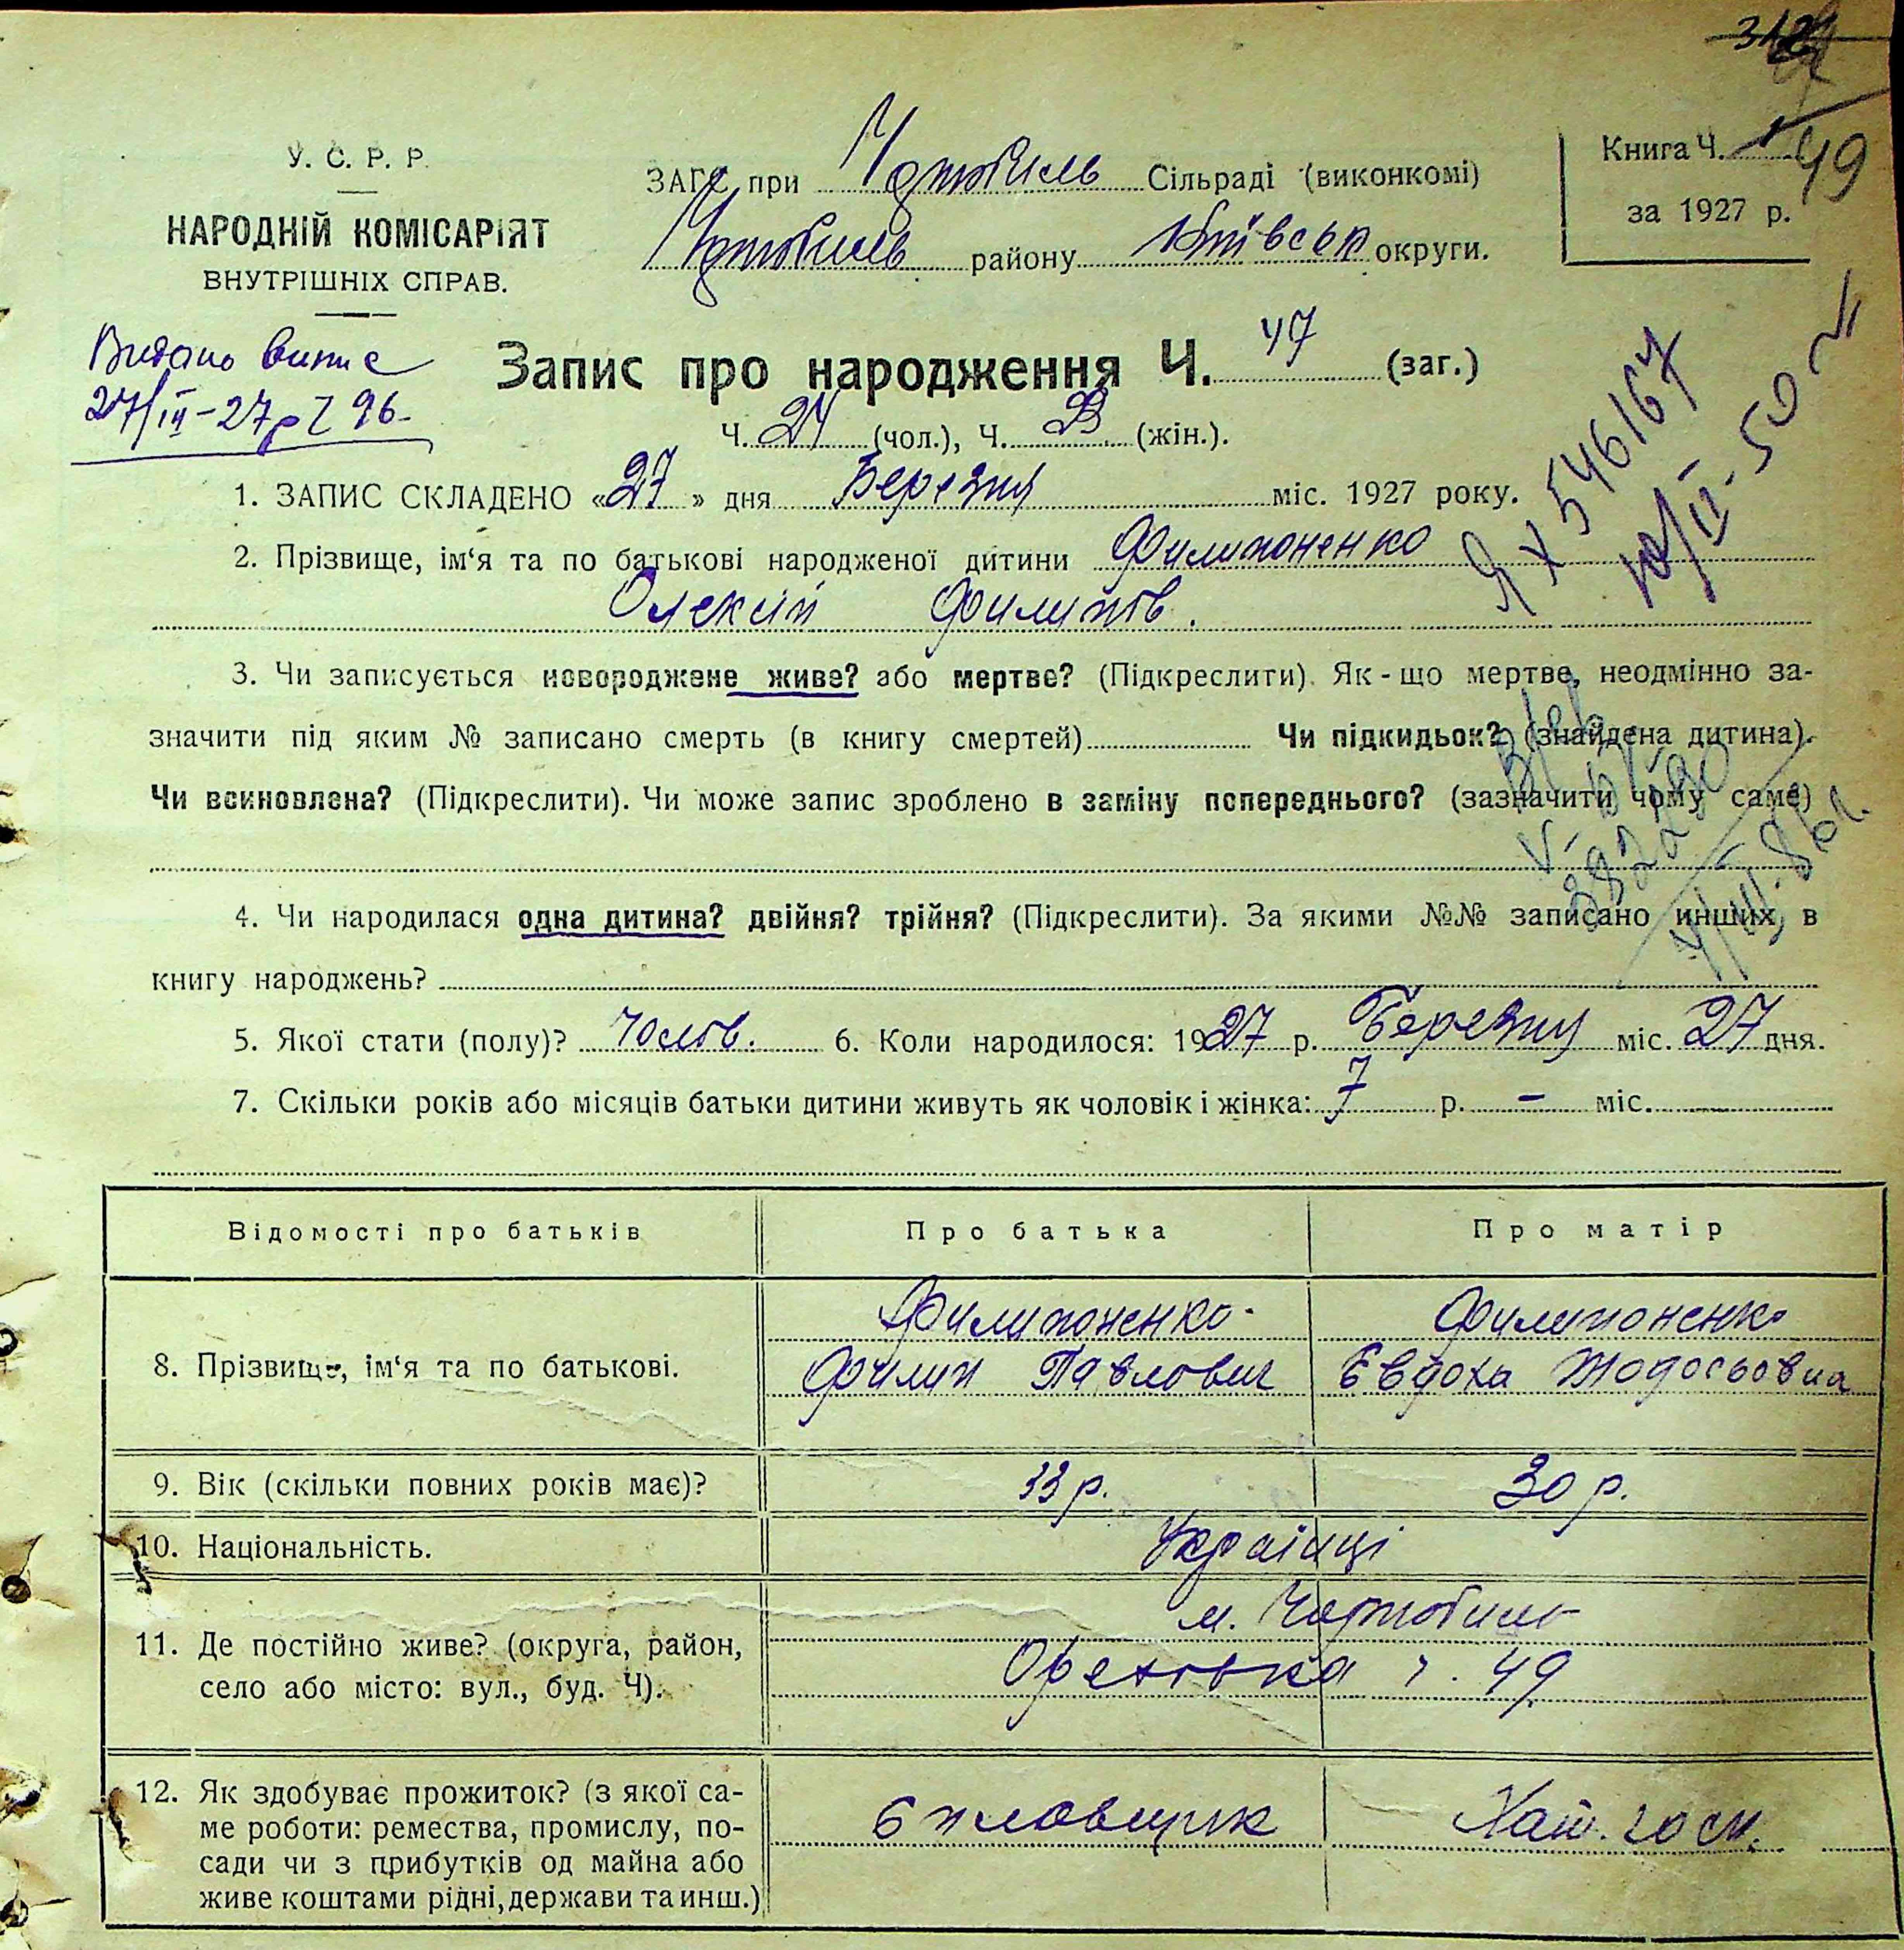 У. С. Р. Р.
НАРОДНІЙ КОМІСАРІЯТ
ВНУТРІШНІХ СПРАВ.
ЗАГС при Чорнобиль Сільраді (виконкомі)
Чорнобиль району Київськ округи.
Книга Ч. 1
49
за 1927 р.
Видано випис
27/III-27р
Запис про народження Ч. 47 (заг.)
Ч. 24 (чол.), Ч. (жін.).
1. ЗАПИС СКЛАДЕНО «27» дня Березня міс. 1927 року.
2. Прізвище, ім‘я та по батькові народженої дитини Филипоненко
Олексій Филипов.
ЯХ 546167
3. Чи записується новороджене живе? або мертве? (Підкреслити). Як-що мертве, неодмінно за-
значити під яким № записано смерть (в книгу смертей) Чи підкидьок? (знайдена дитина).
Чи всиновлена? (Підкреслити). Чи може запис зроблено в заміну попереднього? (зазначити чому саме)
4. Чи народилася одна дитина? двійня? трійня? (Підкреслити). За якими №№ записано инших в
книгу народжень?
5. Якої стати (полу)? Чолов. 6. Коли народилося: 1927 р. Березня міс. 27 дня.
7. Скільки років або місяців батьки дитини живуть як чоловік і жінка: 7 р. – міс.
Відомості про батьків Про батька Про матір
8. Прізвище, ім‘я та по батькові.
Филипоненко Филип Павлович
Филипоненко Євдоха Тодосьовна
9. Вік (скільки повних років має)? 33 р. 30 р.
10. Національність. Українці
11. Де постійно живе? (округа, район,
село або місто: вул., буд. Ч).
м. Чорнобиль
Орехівка ч. 49
12. Як здобуває прожиток? (з якої са-
ме роботи: ремества, промислу, по-
сади чи з прибутків од майна або
живе коштами рідні, держави та инш.)
Хат. госп.